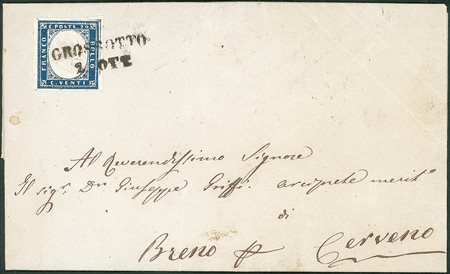 C. POSTE 20
FRANCO
BOLLO
C. VENTI
GROSOTTO
2 OTT
Al Reverendissimo Signore
Il sigr. Dn Giuseppe Griffi. arciprete merito
di
Breno Cerveno